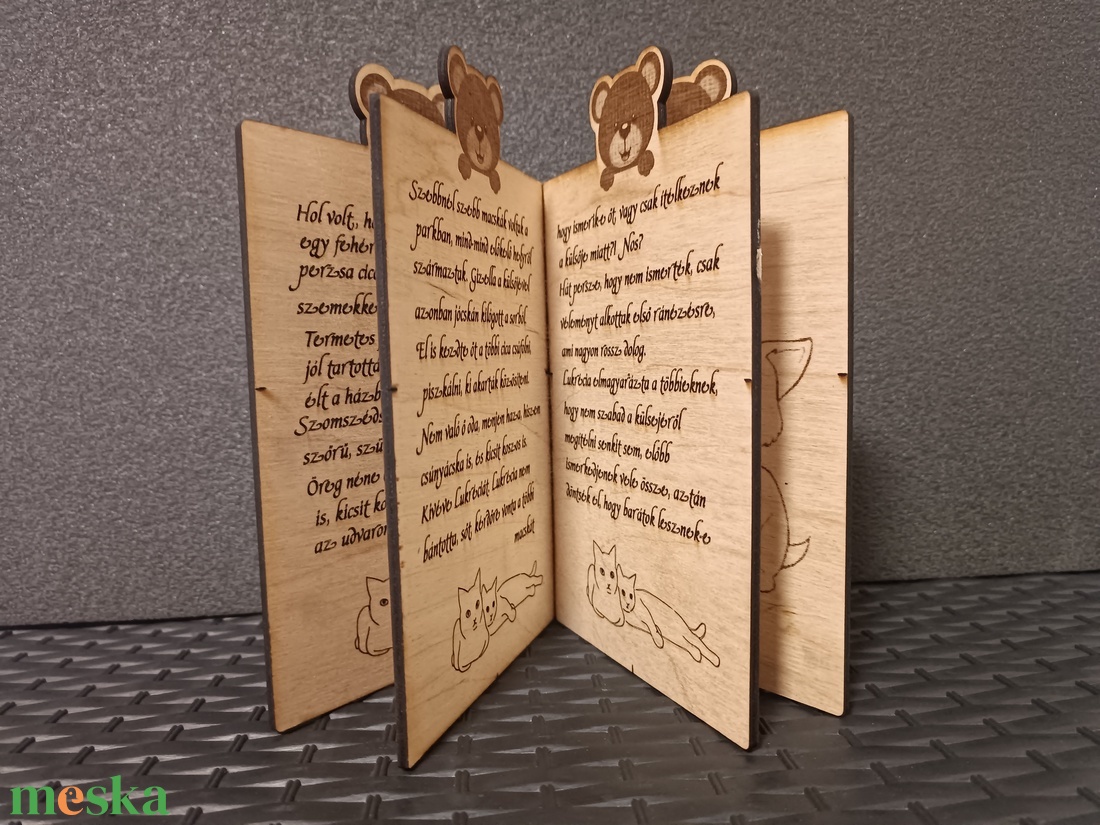 Hol volt, h
egy fehér
perzsa cica
szemekke
Termetes
jól tartotta
élt a házb
Szomszéds
szőrű, szü
Öreg néne
is, kicsit ko
az udvaron
Szebbnél szebb macskák voltak a
parkban, mind-mind előkelő helyről
származtak. Gizella a külsőjével
azonban jócskán kilógott a sorból.
El is kezdte őt a többi cica csúfolni,
piszkálni, ki akarták közösíteni.
Nem való ő oda, menjen haza, hiszen
csúnyácska is, és kicsit koszos is.
Kivéve Lukréciát. Lukrécia nem
bántotta, sőt, kérdőre vonta a többi
macskát
hogy ismerik-e őt, vagy csak ítélkeznek
a külsője miatt?! Nos?
Hát persze, hogy nem ismerték, csak
véleményt alkottak első ránézésre,
ami nagyon rossz dolog.
Lukrécia elmagyarázta a többieknek,
hogy nem szabad a külsejéről
megítélni senkit sem, előbb
ismerkedjenek vele össze, aztán
döntsék el, hogy barátok lesznek-e
meska